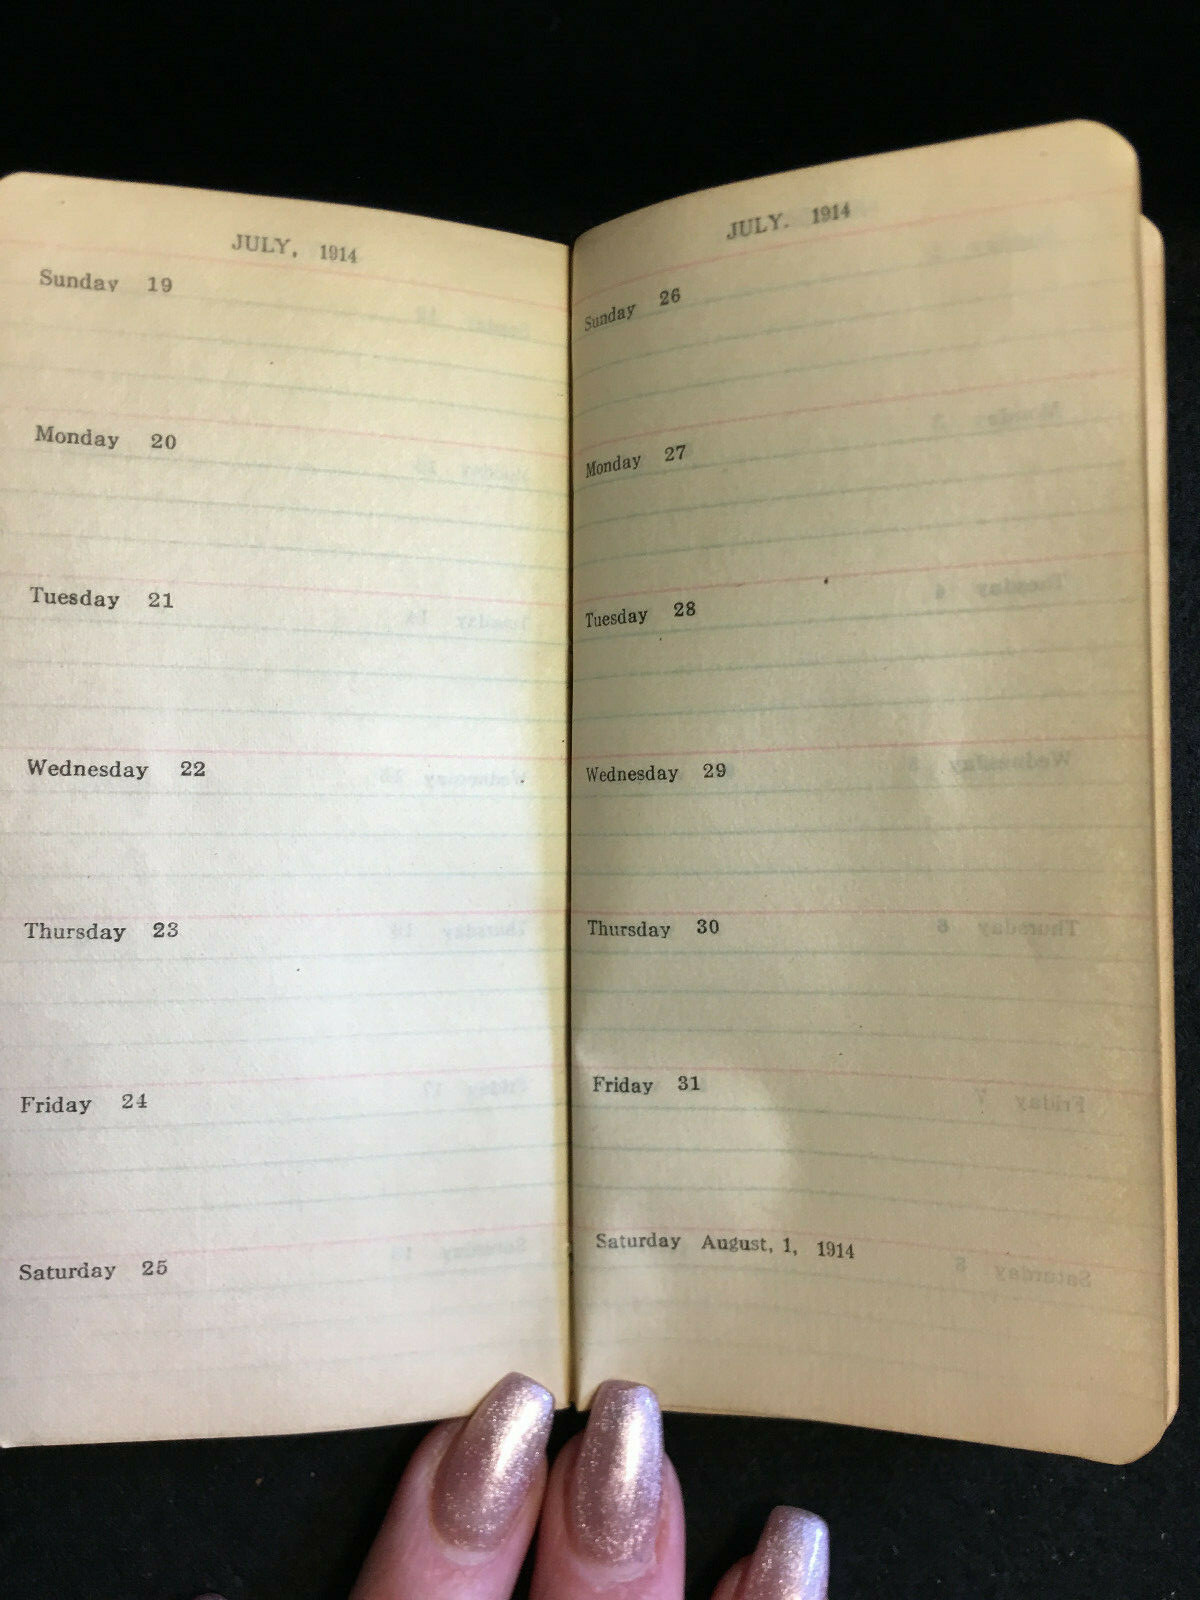 JULY, 1914
Sunday 19
Monday 20
Tuesday 21
Wednesday 22
Thursday 23
Friday 24
Saturday 25
JULY. 1914
Sunday 26
Monday 27
Tuesday 28
Wednesday 29
Thursday 30
Friday 31
Saturday August, 1, 1914